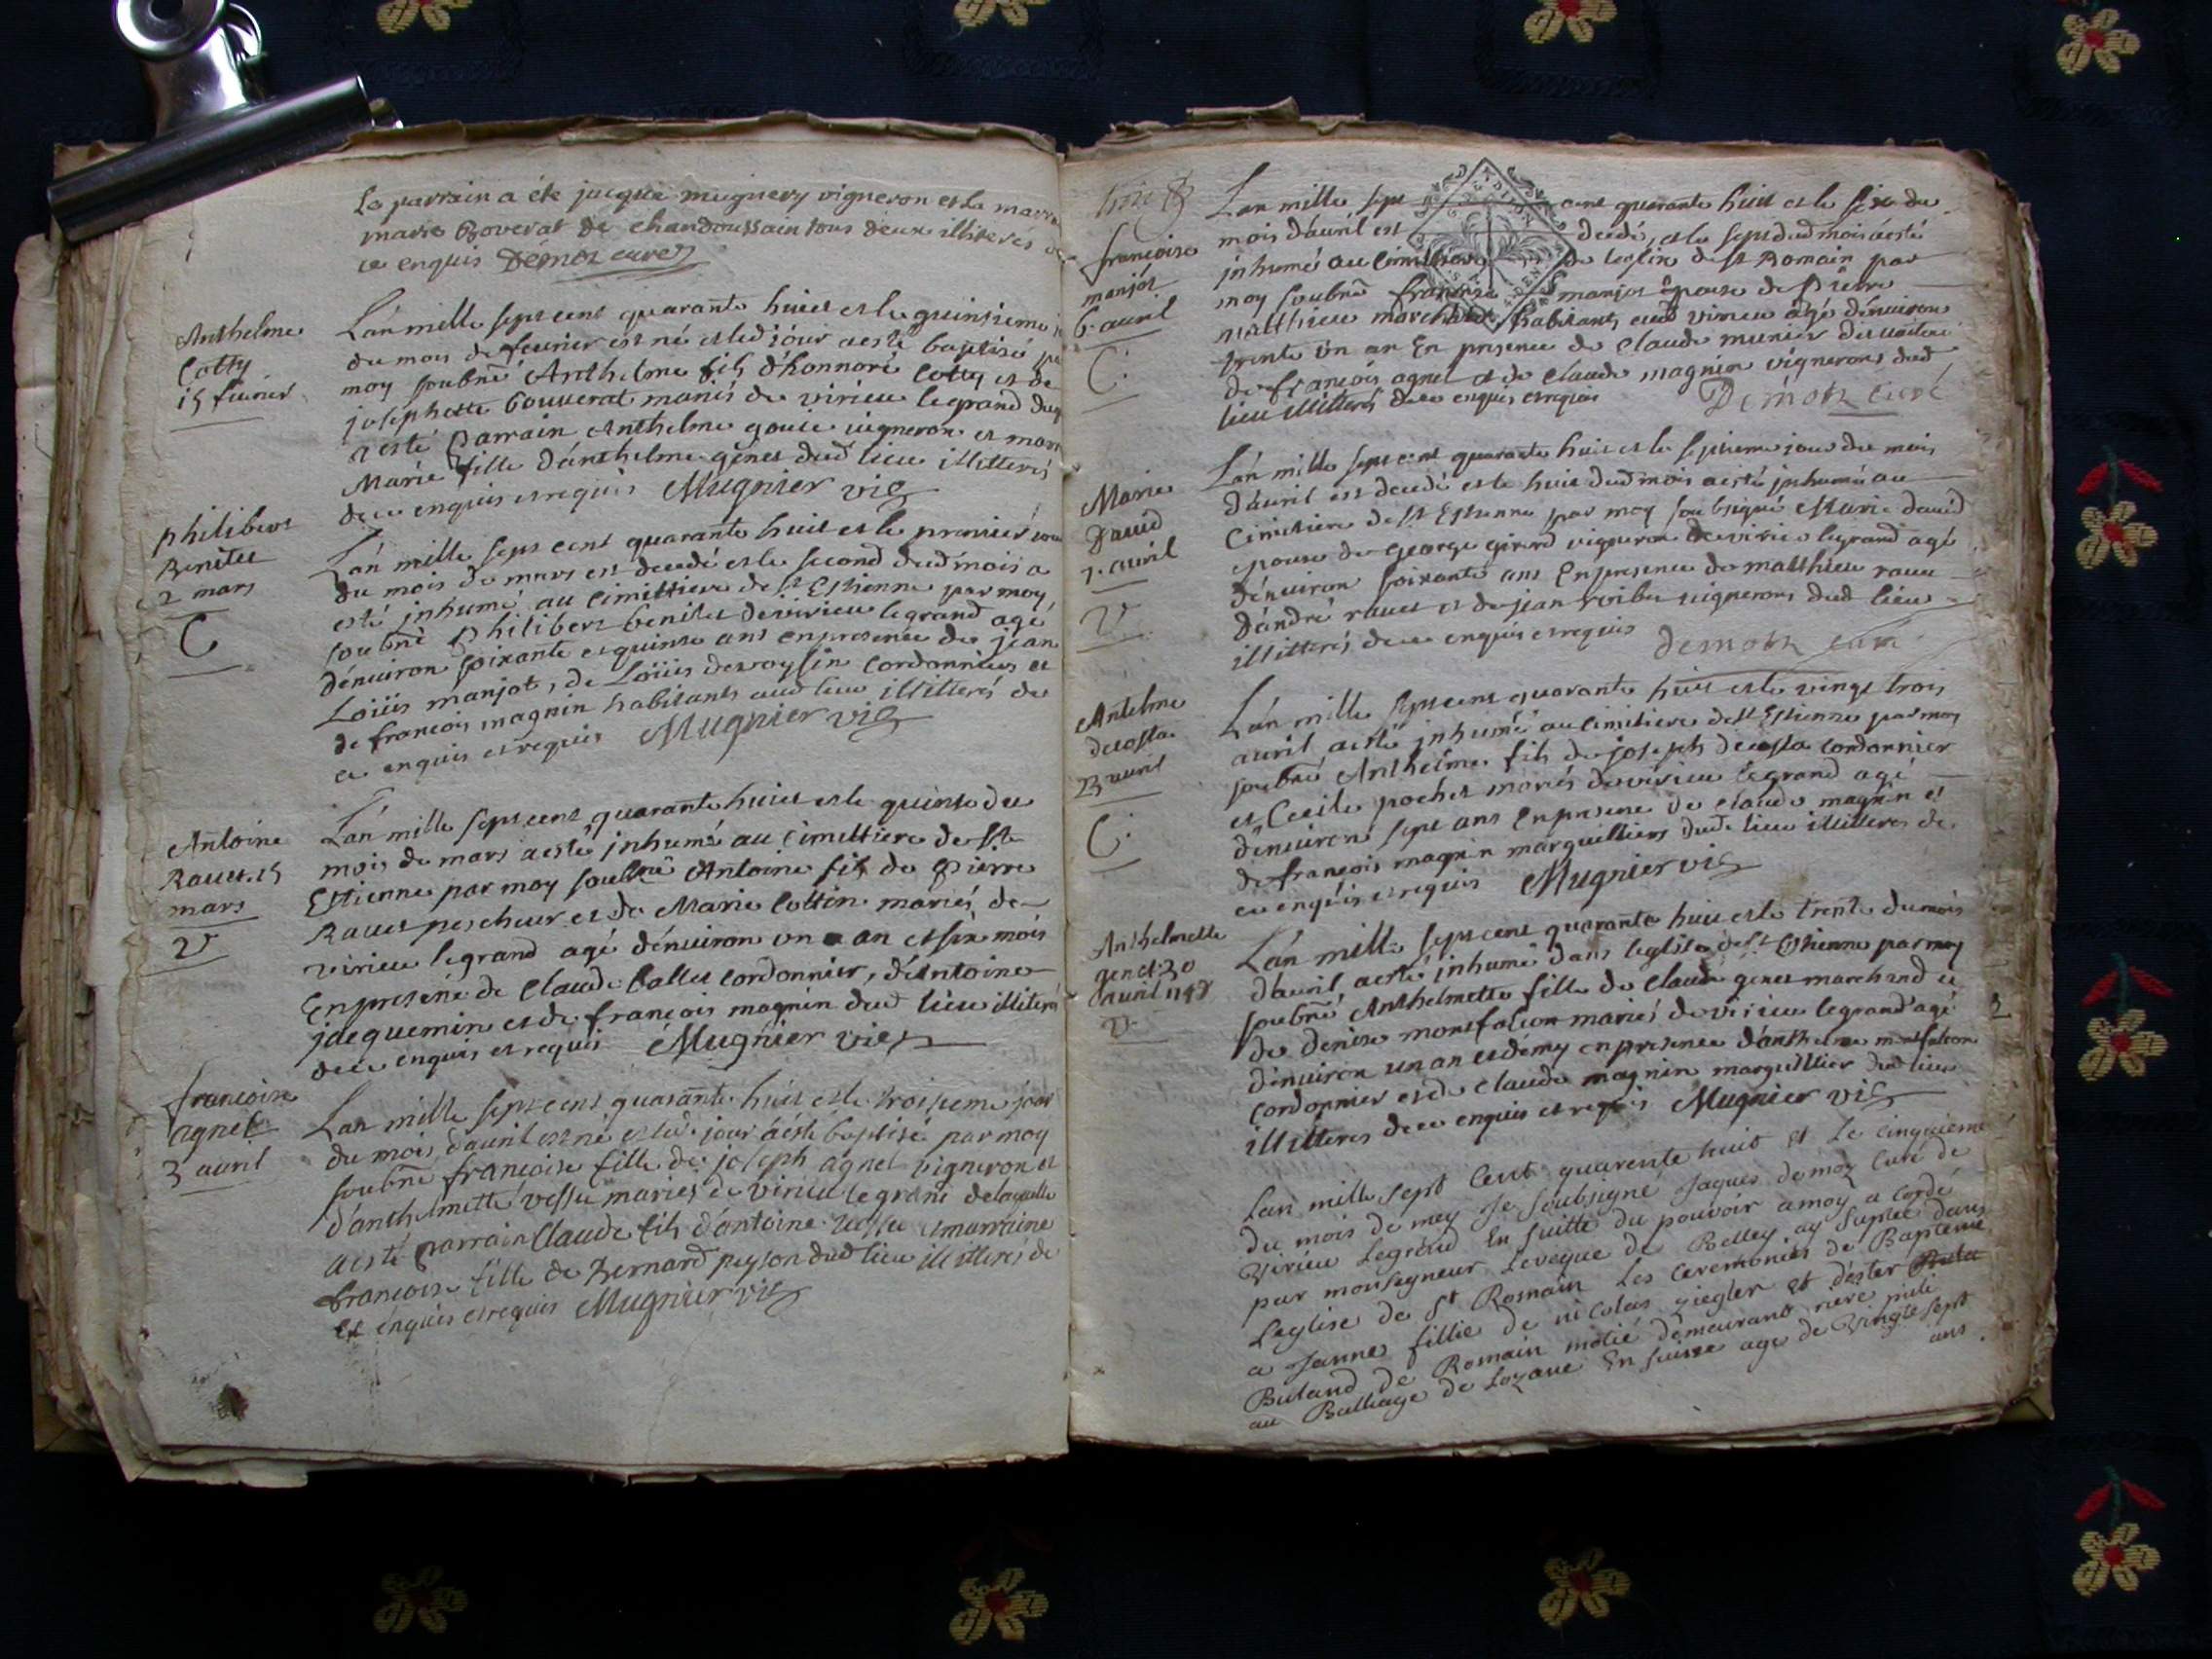 Le parrain a éte jacque mugnery vigneron et la marra
marie Boverat de chandoussain tous deux illiterés de
ce enquis Démoz curé
Anthelme
Cotty
15 fevrier
L'án mille sept cent quarante huict et le quinsieme j
du mois de fevrier est né et led jóur a esté baptisé pa
moy soubné Anthelme fils d'honnoré Cotty et de
josephette bouverat mariés de virieu le grand duq
a esté Parrain Anthelme gouie vigneron et marr
Marie fille d'ánthelme génet dud lieu illitterés
de ce enquis et requis Mugnier vic
philibert
Benitet
2 mars
C
L'án mille sept cent quarante huict et le premier jour
du mois de mars est decedé et le second dud mois a
esté inhumé au cimittiere de st Estienne par moy
soubné Philibert benitet de virieu le grand agé
d'énuiron soixante et quinse ans en presence de jean
Loüis manjot, de Loüis devoysin cordonniers et
de francois magnin habitants aud lieu illitterés de
ce enquis et requis Mugnier vic
Antoine
Rauet. 15
mars
V
L'án mille sept cent quarante huict et le quinse du
mois de mars a esté inhumé au cimettiere de st
Estienne par moy soubné Antoine fils de Pierre
Rauet pescheur et de Marie Cottin mariés de
virieu le grand agé d'énuiron un an et six mois
En presence de Claude Callet cordonnier, d'Antoine
jacquemin et de francois magnin dud lieu illiterés
de ce enquis et requis Mugnier vic
francoise
agnel
3 avril
L'an mille sept cent quarante huict et le troisieme jour
du mois d'avril est né et led jour a esté baptisé par moy
soubné francoise fille de joseph agnel vigneron et
d'anthelmette vessu mariés de virieu le grand de laquelle
a esté parrain Claude fils d'antoine vessu et marraine
francoise fille de Bernard peyson dud lieu illitterés de
ce enquis et requis Mugnier vic
francoise
manjot
6. avril
C.
L'an mille sept cent quarante huit et le six du
mois d'auril est decedé, et le sept dud mois a esté
inhumé au cimittiere de leglise de st Romain par
moy soubné francoise manjot épouse de Pierre
matthieu marchand habitants aud virieu agé d'énuiron
trente un an En presence de Claude munier
de françois agnel et de Claude magnin vignerons dud
lieu illitterés de ce enquis et requis Démoz curé
Marie
David
7. avril
V
L'án mille sept cent quarante huit et le septieme jour du mois
d'auril est decedé et le huit dud mois a esté inhumé au
cimitiere de st Estienne par moy soubsigné Marie david
epouse de george girerd vigneron de virieu le grand agé
d'énuiron soixante ans En presence de matthieu rauet
d'andré rauet et de jean vignerons dud lieu
illitterés de ce enquis et requis demoz curé
Antelme
decosta
23 avril
C.
L'án mille sept cent quarante huit et le vingt trois
avril a esté inhumé au cimitiere de st Estienne par moy
soubné Anthelme fils de joseph decosta cordonnier
et Cecile pochet mariés de virieu le grand agé
d'énuiron sept ans En presence de Claude magnin et
de francois magnin marguilliers dud lieu illitteres de
ce enquis et requis Mugnier vic
Anthelmette
genet. 30
avril 1748
V.
L'án mille sept cent quarante huit et le trente du mois
d'auril a esté inhumé dans leglise de st Estienne par moy
soubné Anthelmette fille de Claude genet marchand et
de denise montfalcon mariés de virieu le grand agé
d'énuiron un an et demy en presence d'ánthelme montfalcon
cordonnier et de Claude magnin marguillier dud lieu
illitteres de ce enquis et requis Mugnier vic
L'an mille sept cent quarente huit et le cinquieme
du mois de mey Je soubsigné Jaques demoz curé de
Virieu Legrand En suitte du pouvoir a moy a cordé
par monseigneur Leveque de Belley ay suplée dans
Leglise de st Romain les ceremonies de Bapteme
a Jeanne fillie de nicolas ziegler et d'ester
Buland de Romain motié demeurant riere puli
au Balliage de Lozane En suisse age de vingte sept
ans